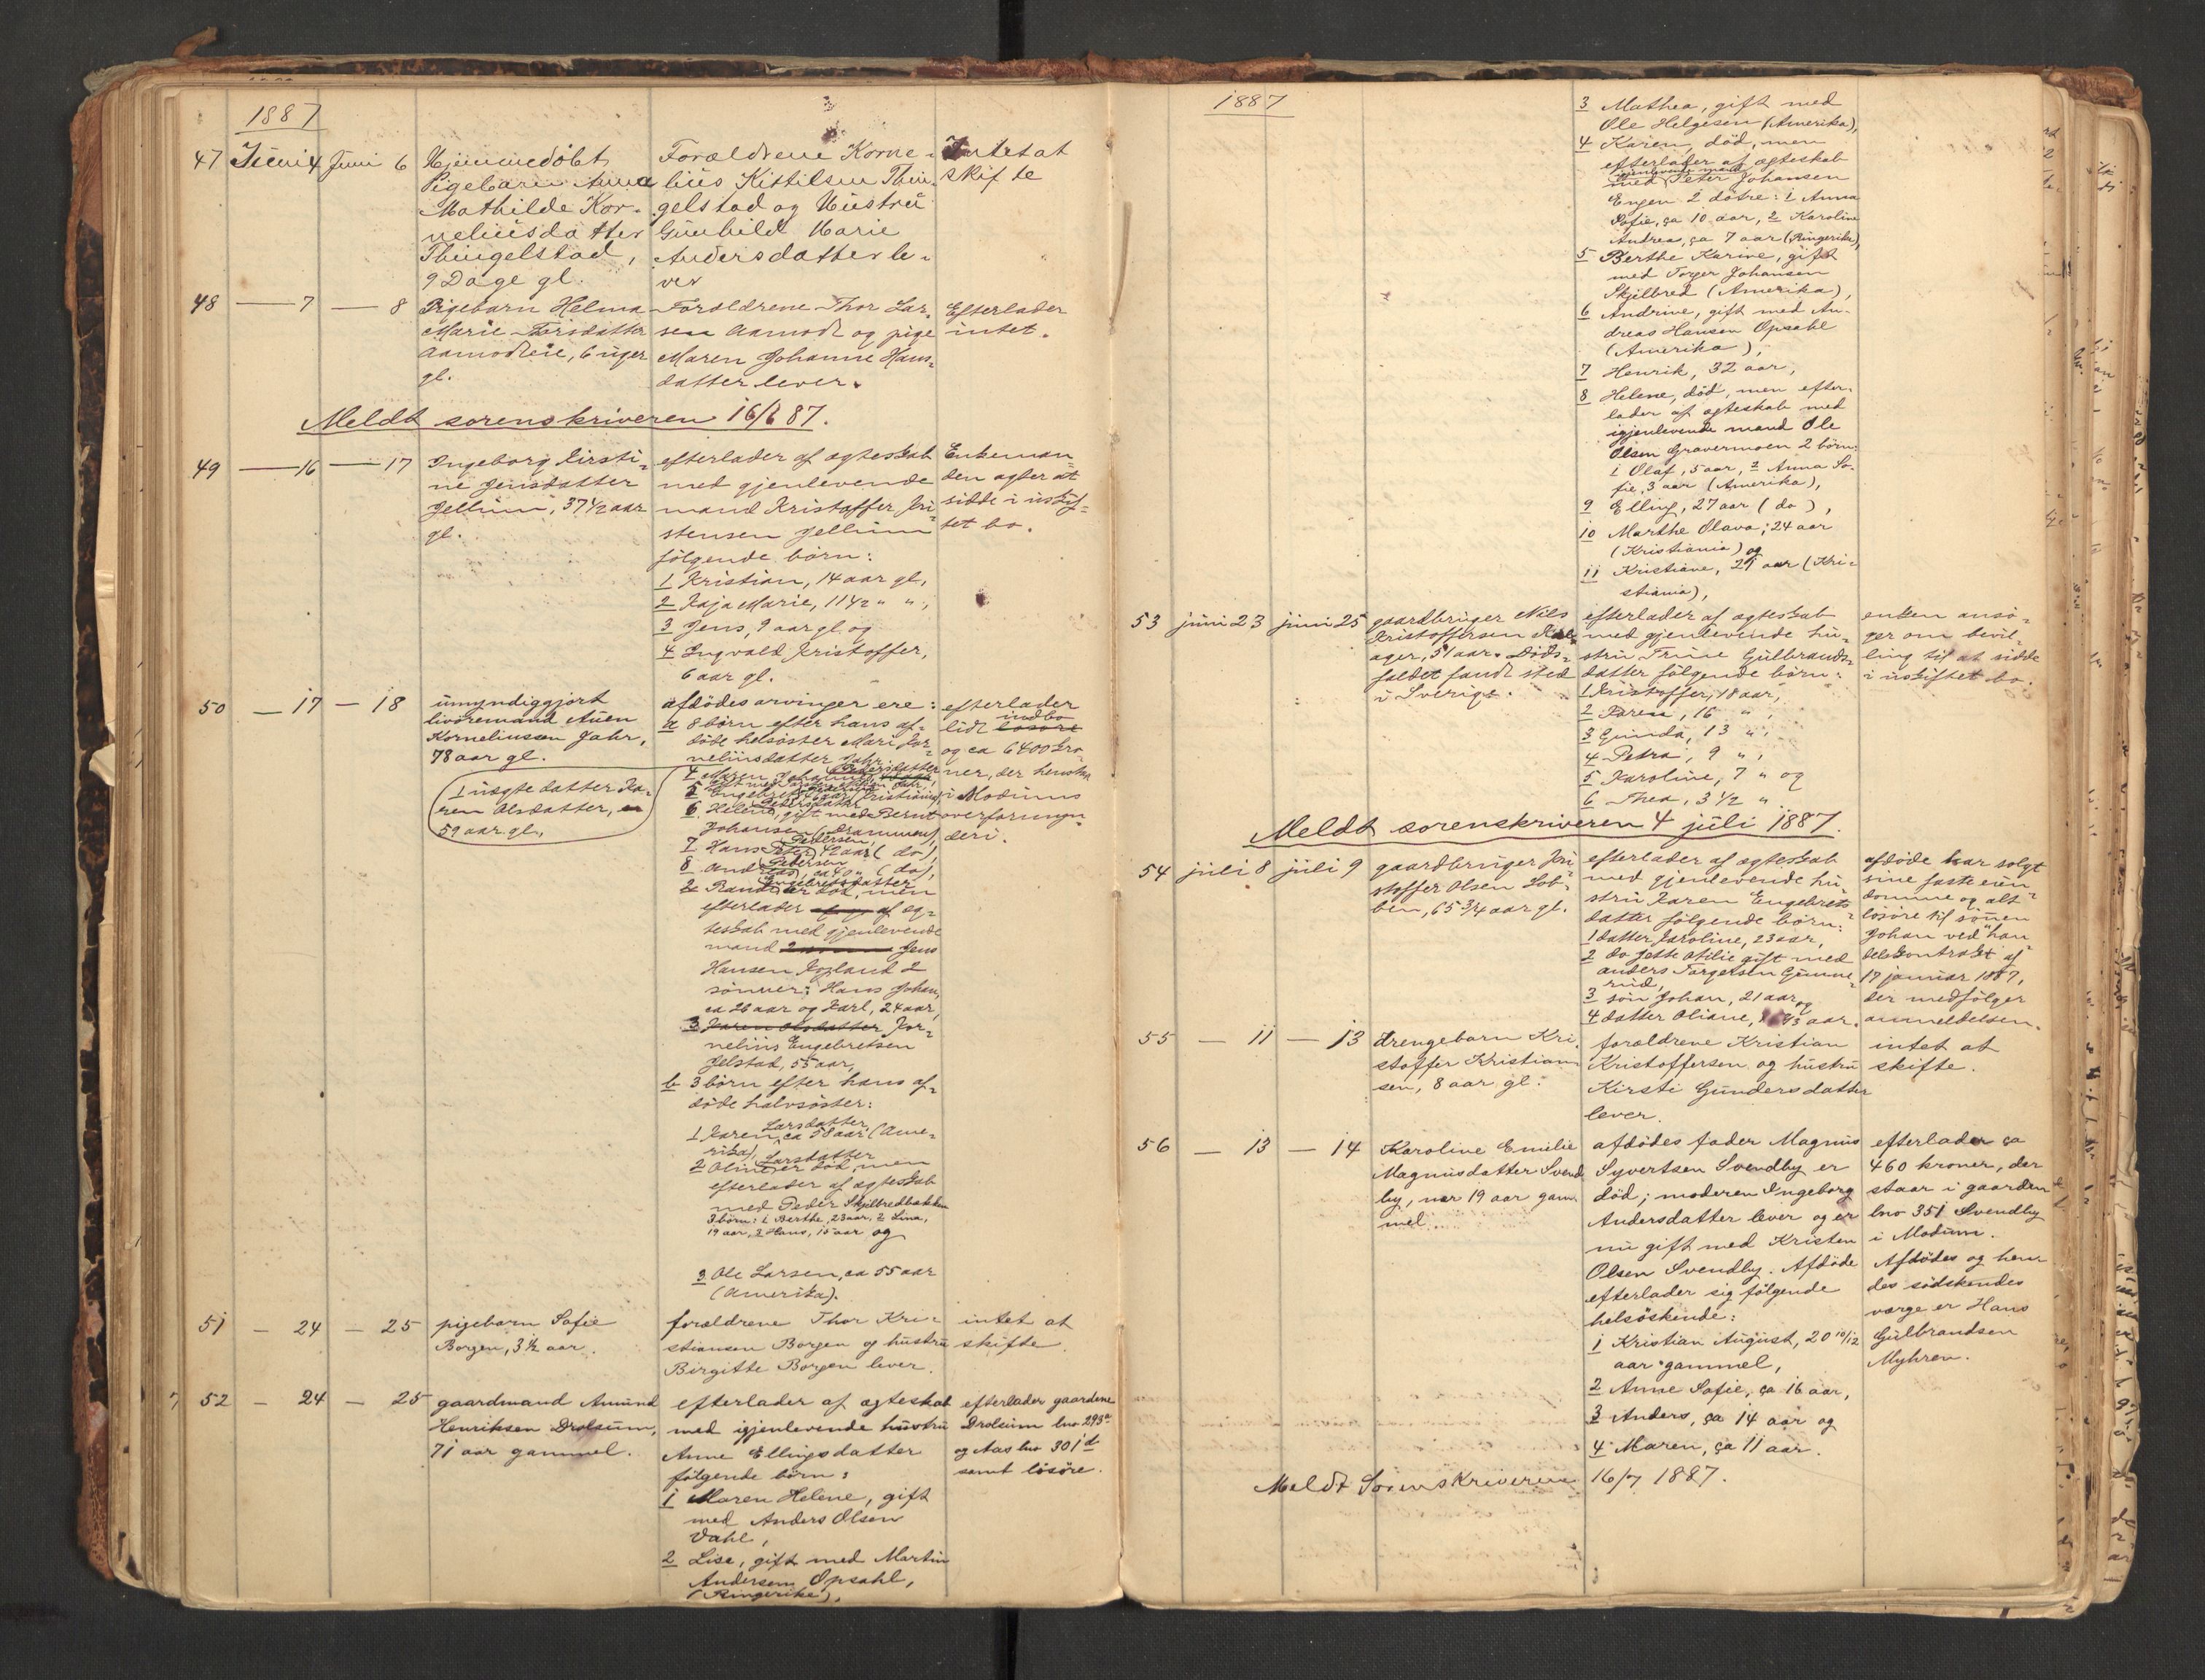 1887
47 Juni 4 Juni 6 Hjemmedöbt Forældrene Korne- Intet at
Pigebarn Anna lius Kittilsen Thin- skifte
Mathilde Kor- gelstad og Hustru
neliusdatter Gunhild Marie
Thingelstad, Andersdatter le-
9 Dage gl. ver
48 — 7 — 8 Pigebarn Helma Forældrene Thor Lar- Efterlader
Marie Torsdatter sen Aamodt og pige intet.
Aamodteie, 6 uger Maren Johanne Hans-
gl. datter lever.
Meldt sorenskriveren 16/6 87.
49 — 16 — 17 Ingeborg Kirsti- efterlader af ægteskab Enkeman-
ne Jensdatter med gjenlevende den agter at
Jellum, 37 1/2 aar mand Kristoffer Kri- sidde i uskif-
gl. stensen Jellum tet bo.
følgende börn:
1 Kristian, 14 aar gl,
2 Kaja Marie, 11 1/2 " ",
3 Jens, 9 aar gl. og
4 Ingvald Kristoffer,
6 aar gl.
50 — 17 — 18 umyndiggjort afdödes arvinger ere: efterlader
livöremand Auen a 8 börn efter hans af- lidt indbo
Korneliussen Jahr, döde helsöster Mari Kor- og ca 6400 kro-
78 aar gl. neliusdatter Jahr: ner, der henstaa
1 uægte datter Ka- i Modums
ren Olsdatter, overformyn-
59 aar gl., deri.
4 Maren Johanne Pedersdatter
5 Engebret
6 Helene Pedersdatter, gift med Bernt
Johansen (Drammen),
7 Hans Peter Pedersen, 42 aar (do),
8 Andreas Pedersen, ca 40 " (do),
2 Randi Engebretsdatter er död, men
efterlader af æg-
teskab med gjenlevende
mand Jens
Hansen Fogland 2
sönner: Hans Johan,
ca 26 aar og Karl, 24 aar,
3 Karen Olsdatter Kor-
nelius Engebretsen
Jelstad, 55 aar,
b 3 börn efter hans af-
döde halvsöster:
1 Karen Larsdatter, ca 58 aar (Ame-
rika),
2 Oline Larsdatter er död, men
efterlader af ægteskab
med Peder Skjelbredbakken
3 börn: 1 Berthe, 23 aar, 2 Lina,
19 aar, 3 Hans, 15 aar og
3 Ole Larsen, ca 55 aar
(Amerika).
51 — 24 — 25 pigebarn Sofie forældrene Thor Kri- intet at
Borgen, 3 1/2 aar. stiansen Borgen og hustru skifte.
Birgitte Borgen lever.
52 — 24 — 25 gaardmand Amund efterlader af ægteskab efterlader gaardene
Henriksen Drolsum, med igjenlevende hustru Drolsum lno 293a
71 aar gammel. Anne Ellingsdatter og Aas lno 301d
følgende börn: samt lösöre.
1 Maren Helene, gift
med Anders Olsen
Dahl,
2 Lise, gift med Martin
Andersen Opsahl,
(Ringerike),
1887
3 Mathea, gift med
Ole Helgesen (Amerika),
4 Karen, död, men
efterlader af ægteskab
med igjenlevende mand Peter Johansen
Engen 2 dötre: 1 Anna
Sofie, ca 10 aar, 2 Karoline
Andrea, ca 7 aar (Ringerike),
5 Berthe Karine, gift
med Torger Johansen
Skjelbred (Amerika),
6 Andrine, gift med An-
dreas Hansen Opsahl
(Amerika),
7 Henrik, 32 aar,
8 Helene, död, men efter-
lader af ægteskab med
igjenlevende mand Ole
Olsen Gravermoen 2 börn:
1 Olaf, 5 aar, 2 Anna So-
fie, 3 aar (Amerika),
9 Elling, 27 aar (do),
10 Marthe Olava, 24 aar
(Kristiania) og
11 Kristiane, 21 aar (Kri-
stiania),
53 juni 23 juni 25 gaardbruger Nils efterlader af ægteskab enken ansö-
Kristoffersen med gjenlevende hu- ger om bevil-
ager, 51 aar. Döds- stru Trine Gulbrands- ling til at sidde
faldet fandt sted datter følgende börn: i uskiftet bo.
i Sverige. 1 Kristoffer, 18 aar,
2 16 ",
3 Gunda, 13 ",
4 Petra, 9 ",
5 Karoline, 7 " og
6 Thea, 3 1/2 "
Meldt sorenskriveren 4 juli 1887.
54 juli 8 juli 9 gaardbruger Kri- efterlader af ægteskab afdöde har solgt
stoffer Olsen Lob- med gjenlevende hu- sine faste eien-
ben, 65 3/4 aar gl. stru Karen Engebrets- domme og alt
datter følgende börn: lösöre til sönnen
1 datter Karoline, 23 aar, Johan ved han-
2 do Jette Otilie gift med delskontrakt af
Anders Torgersen Gunne- 17 januar 1887,
rud,
3 sön Johan, 21 aar og der medfølger
4 datter Oliane, aar. anmeldelsen.
55 — 11 — 13 drengebarn Kri- forældrene Kristian intet at
stoffer Kristian- Kristoffersen og hustru skifte.
sen, 8 aar gl. Kirsti Gundersdatter
lever.
56 — 13 — 14 Karoline Emilie afdödes fader Magnus efterlader ca
Magnusdatter Svend- Syvertsen Svendby er 460 kroner, der
by, nær 19 aar gam- död; moderen Ingeborg staar i gaarden
mel. Andersdatter lever og er lno 351 Svendby
nu gift med Kristen i Modum.
Olsen Svendby. Afdöde Afdödes og hen-
efterlader sig følgende des södskendes
helsöskende: værge er Hans
1 Kristian August, 20 10/12 Gulbrandsen
aar gammel, Myhren.
2 Anne Sofie, ca 16 aar,
3 Anders, ca 14 aar og
4 Maren, ca 11 aar.
Meldt Sorenskriveren 16/7 1887.